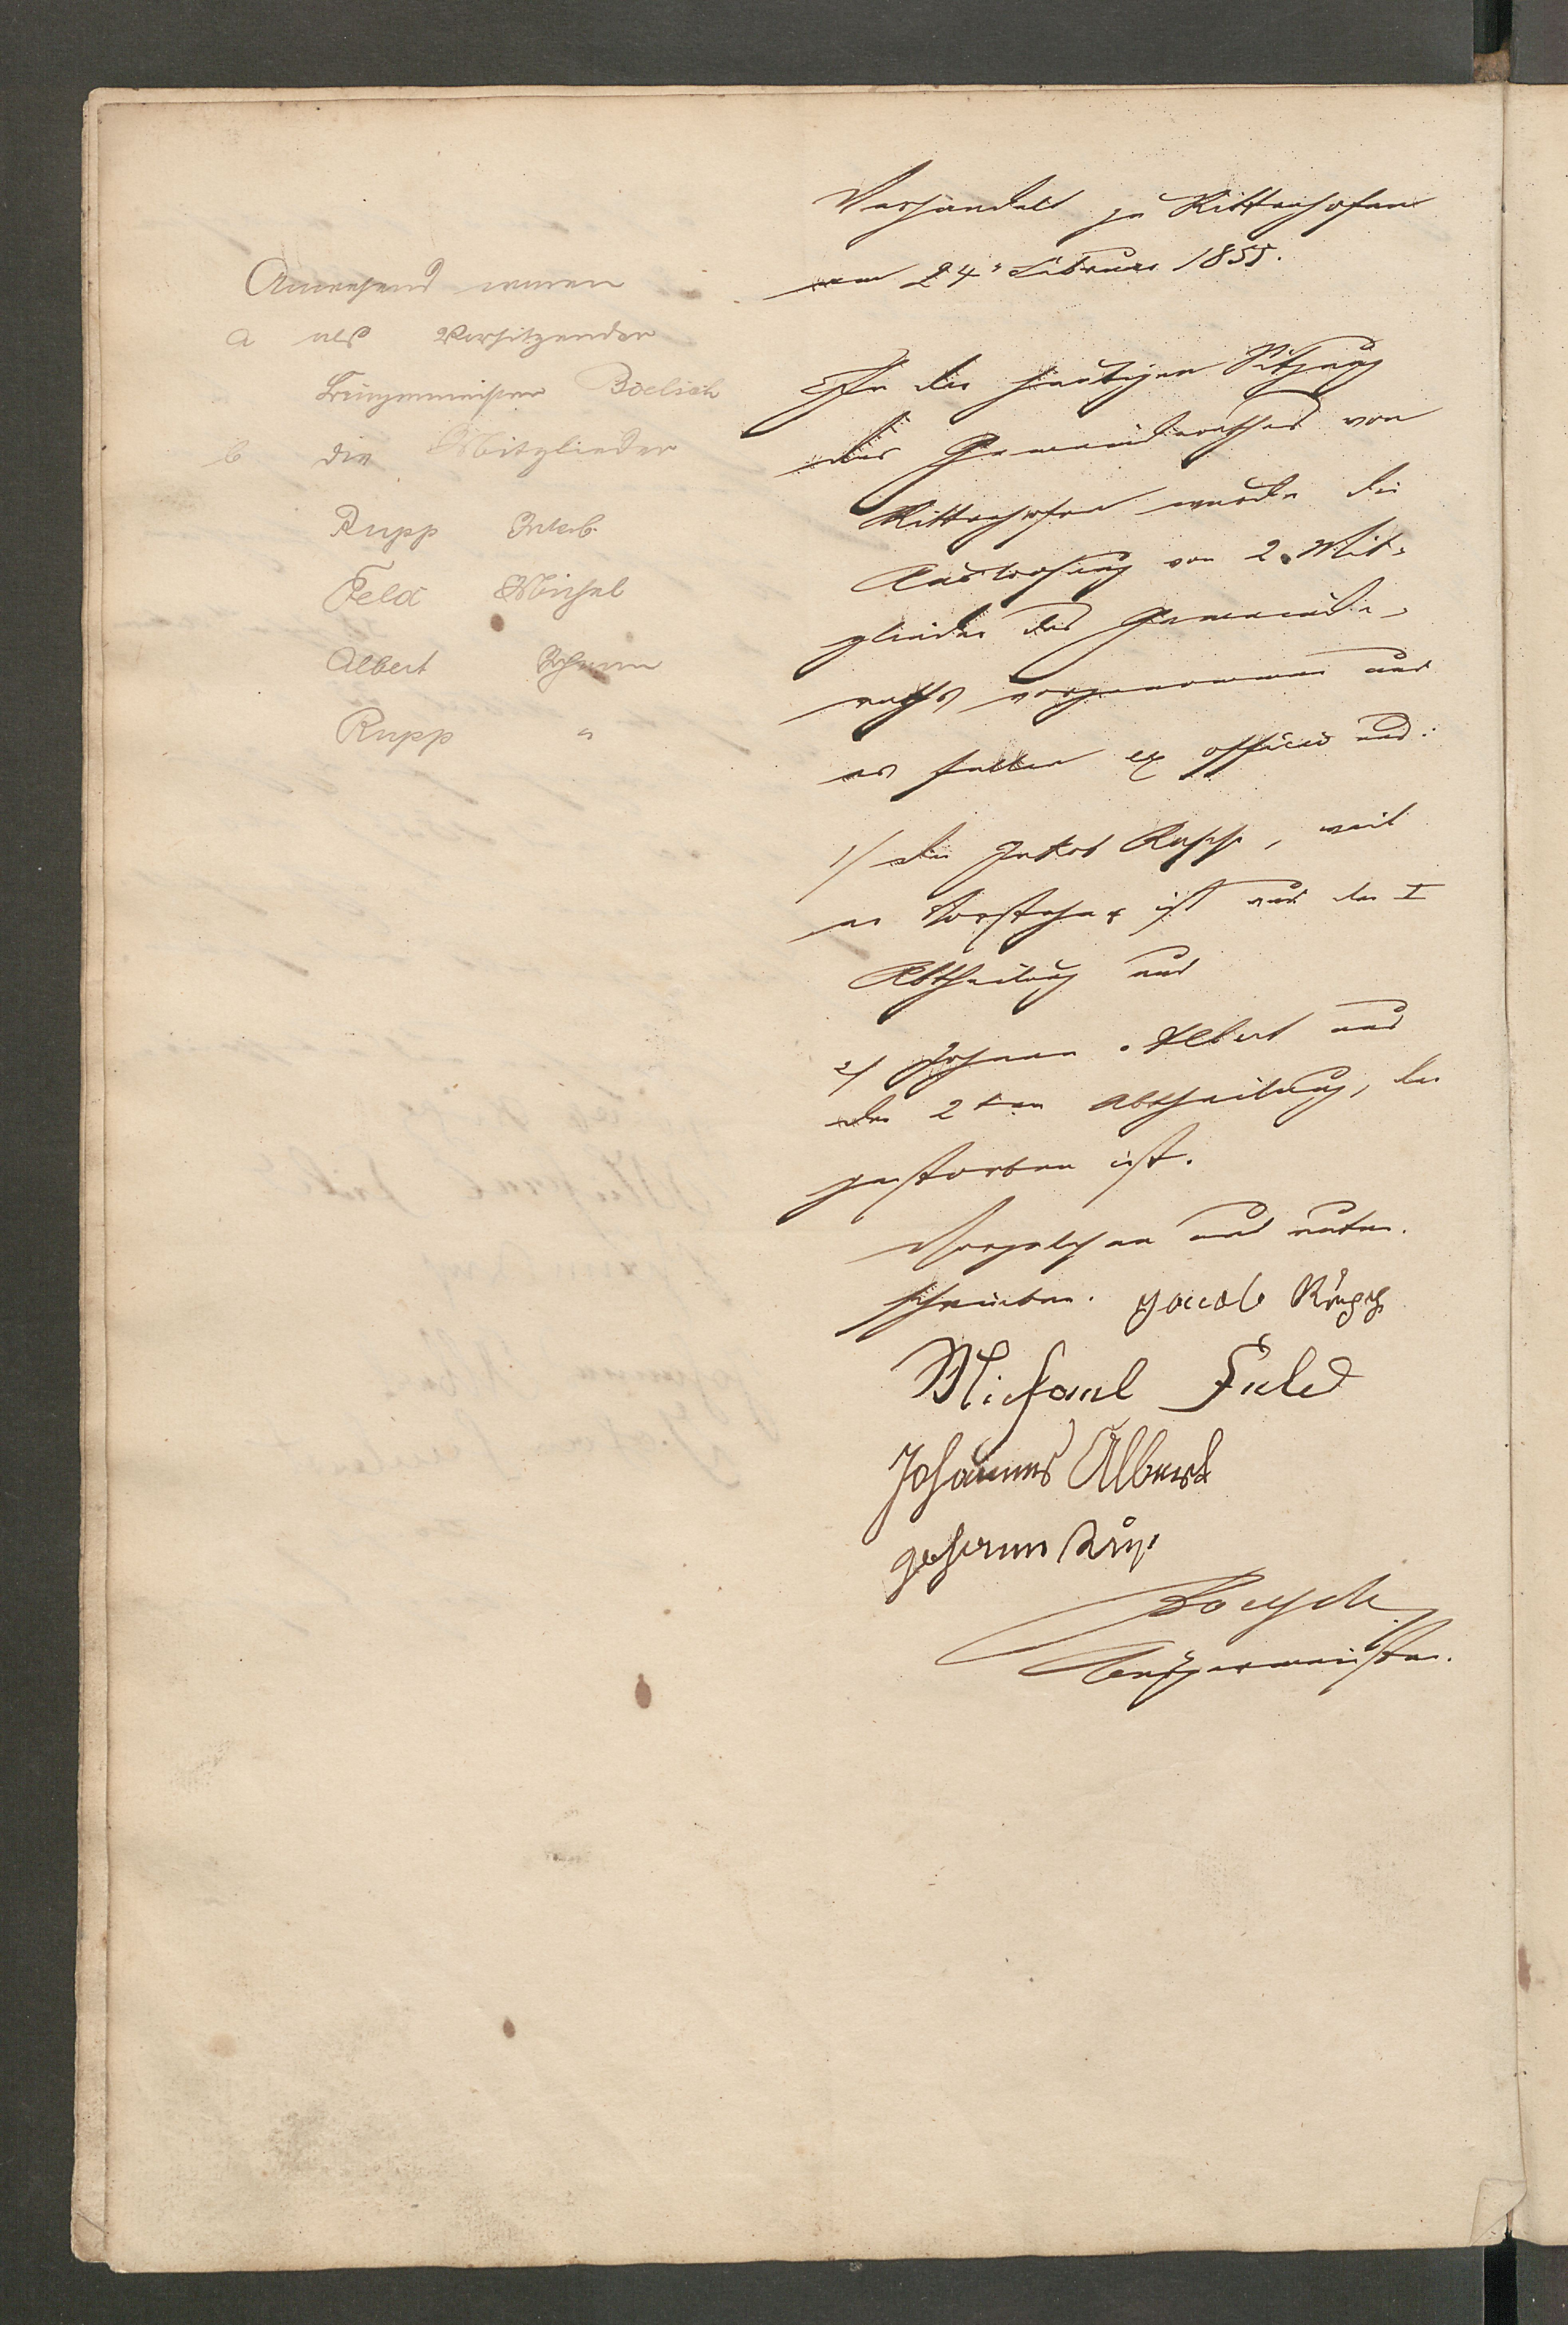 Anwesend waren
a als Vorsitzender
Bürgermeister Boelsch
b die Mitglieder
Rupp Jakob
Feld Michel
Albert Johann
Rupp "
Verhandelt zu Rittenhofen
am 24' Februar 1855.
In der heutigen Sitzung
des Gemeinderathes von
Rittenhofen wurde die
Ausloosung von 2. Mit-
glieder des Gemeinde-
raths vorgenommen und
es fallen ex officio aus:
1/ der Jakob Rupp, weil
er Vorsteher ist aus der I
Abtheilung und
2/ Johann Albert aus
der 2ten Abtheilung, der
gestorben ist.
Vorgelesen und unter-
schrieben. Jacob Rupp
Michael Feld
Johannes Albert
Johann Rup
Boelsch
Bürgermeister.